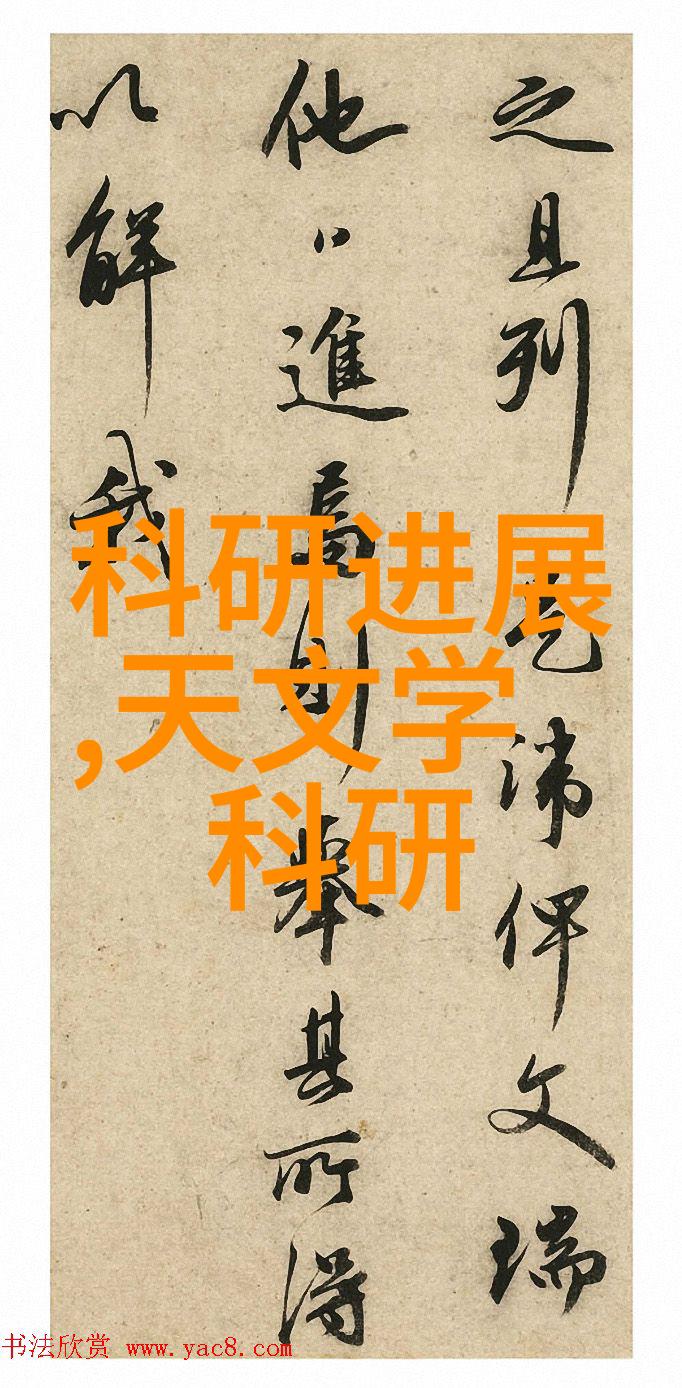 之且列諱俾文瑞
他進則舉其所得
以解我
科研进展
,天文学
科研
书法欣赏 www.yac8.com